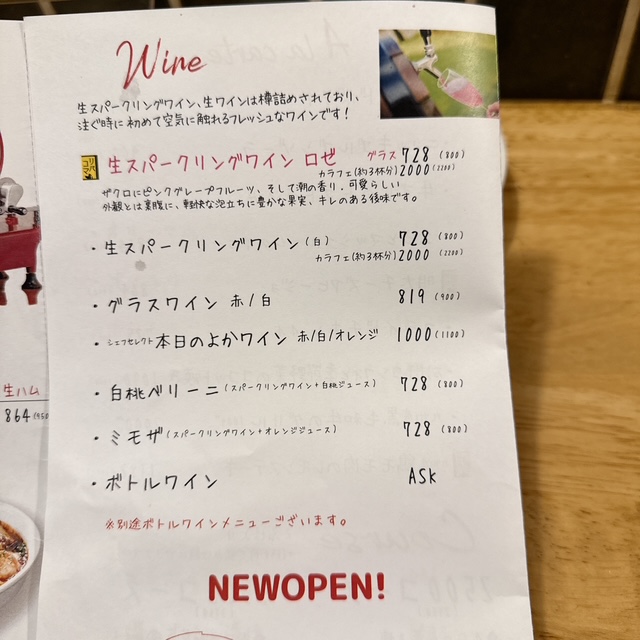 Wine
生スパークリングワイン、生ワインは樽詰めされており、
注ぐ時に初めて空気に触れるフレッシュなワインです!
ゴリマイ 生スパークリングワイン ロゼ グラス 728 (800)
カラフェ(約3杯分) 2000 (2200)
ザクロにピンクグレープフルーツ、そして潮の香り。可愛らしい
外観とは裏腹に、軽快な泡立ちに豊かな果実、キレのある後味です。
・生スパークリングワイン(白) 728 (800)
カラフェ(約3杯分) 2000 (2200)
・グラスワイン 赤/白 819 (900)
・シェフセレクト 本日のよかワイン 赤/白/オレンジ 1000 (1100)
・白桃ベリーニ(スパークリングワイン+白桃ジュース) 728 (800)
・ミモザ(スパークリングワイン+オレンジジュース) 728 (800)
・ボトルワイン ASK
※別途ボトルワインメニューございます。
NEWOPEN!
生ハム
864 (950